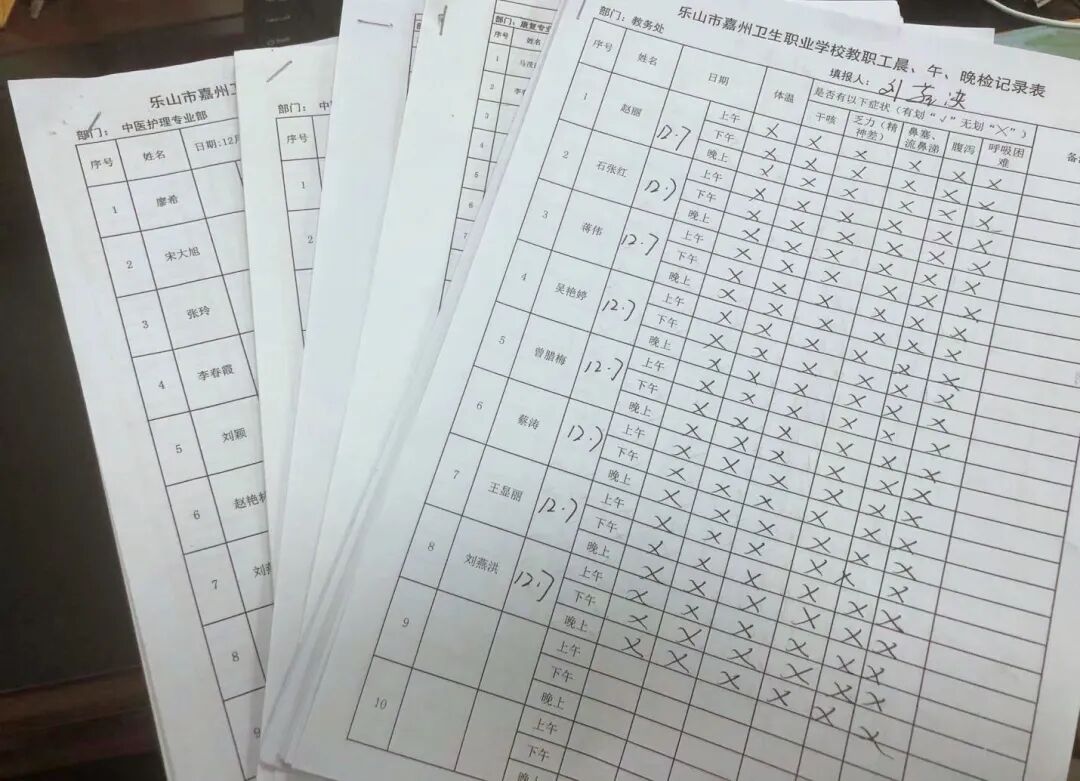 乐山市嘉州卫生职业学校教职工晨、午、晚检记录表
部门：教务处
填报人：刘燕洪
序号 姓名 日期 体温 是否有以下症状（有划“√”无划“×”）
干咳 乏力（精神差） 鼻塞、流鼻涕 腹泻 呼吸困难
1 赵丽 12.7 上午 × × × × × ×
下午 × × × × × ×
晚上 √ × × × × ×
2 石张红 12.7 上午 × × × × × ×
下午 × × × × × ×
晚上 × × × × × ×
3 蒋伟 12.7 上午 × × × × × ×
下午 × × × × × ×
晚上 × × × × × ×
4 吴艳婷 12.7 上午 × × × × × ×
下午 × × × × × ×
晚上 × × × × × ×
5 曾腊梅 12.7 上午 × × × × × ×
下午 × × × × × ×
晚上 × × × × × ×
6 蔡涛 12.7 上午 × × × × × ×
下午 × × × × × ×
晚上 × × × × × ×
7 王显丽 12.7 上午 × × × × × ×
下午 × × × × × ×
晚上 × × × × × ×
8 刘燕洪 12.7 上午 × × × × × ×
下午 × × × × × ×
晚上 × × × × × ×
9 上午
下午
晚上
10 上午
下午
晚上
部门：康复专业
序号 姓名
1
2
4
5
6
7
部门：中
序号
1
2
乐山市嘉州卫
部门： 中医护理专业部
序号 姓名 日期:12月
1 廖希
2 宋大旭
3 张玲
4 李春霞
5 刘颖
6 赵艳
7 刘
8
9